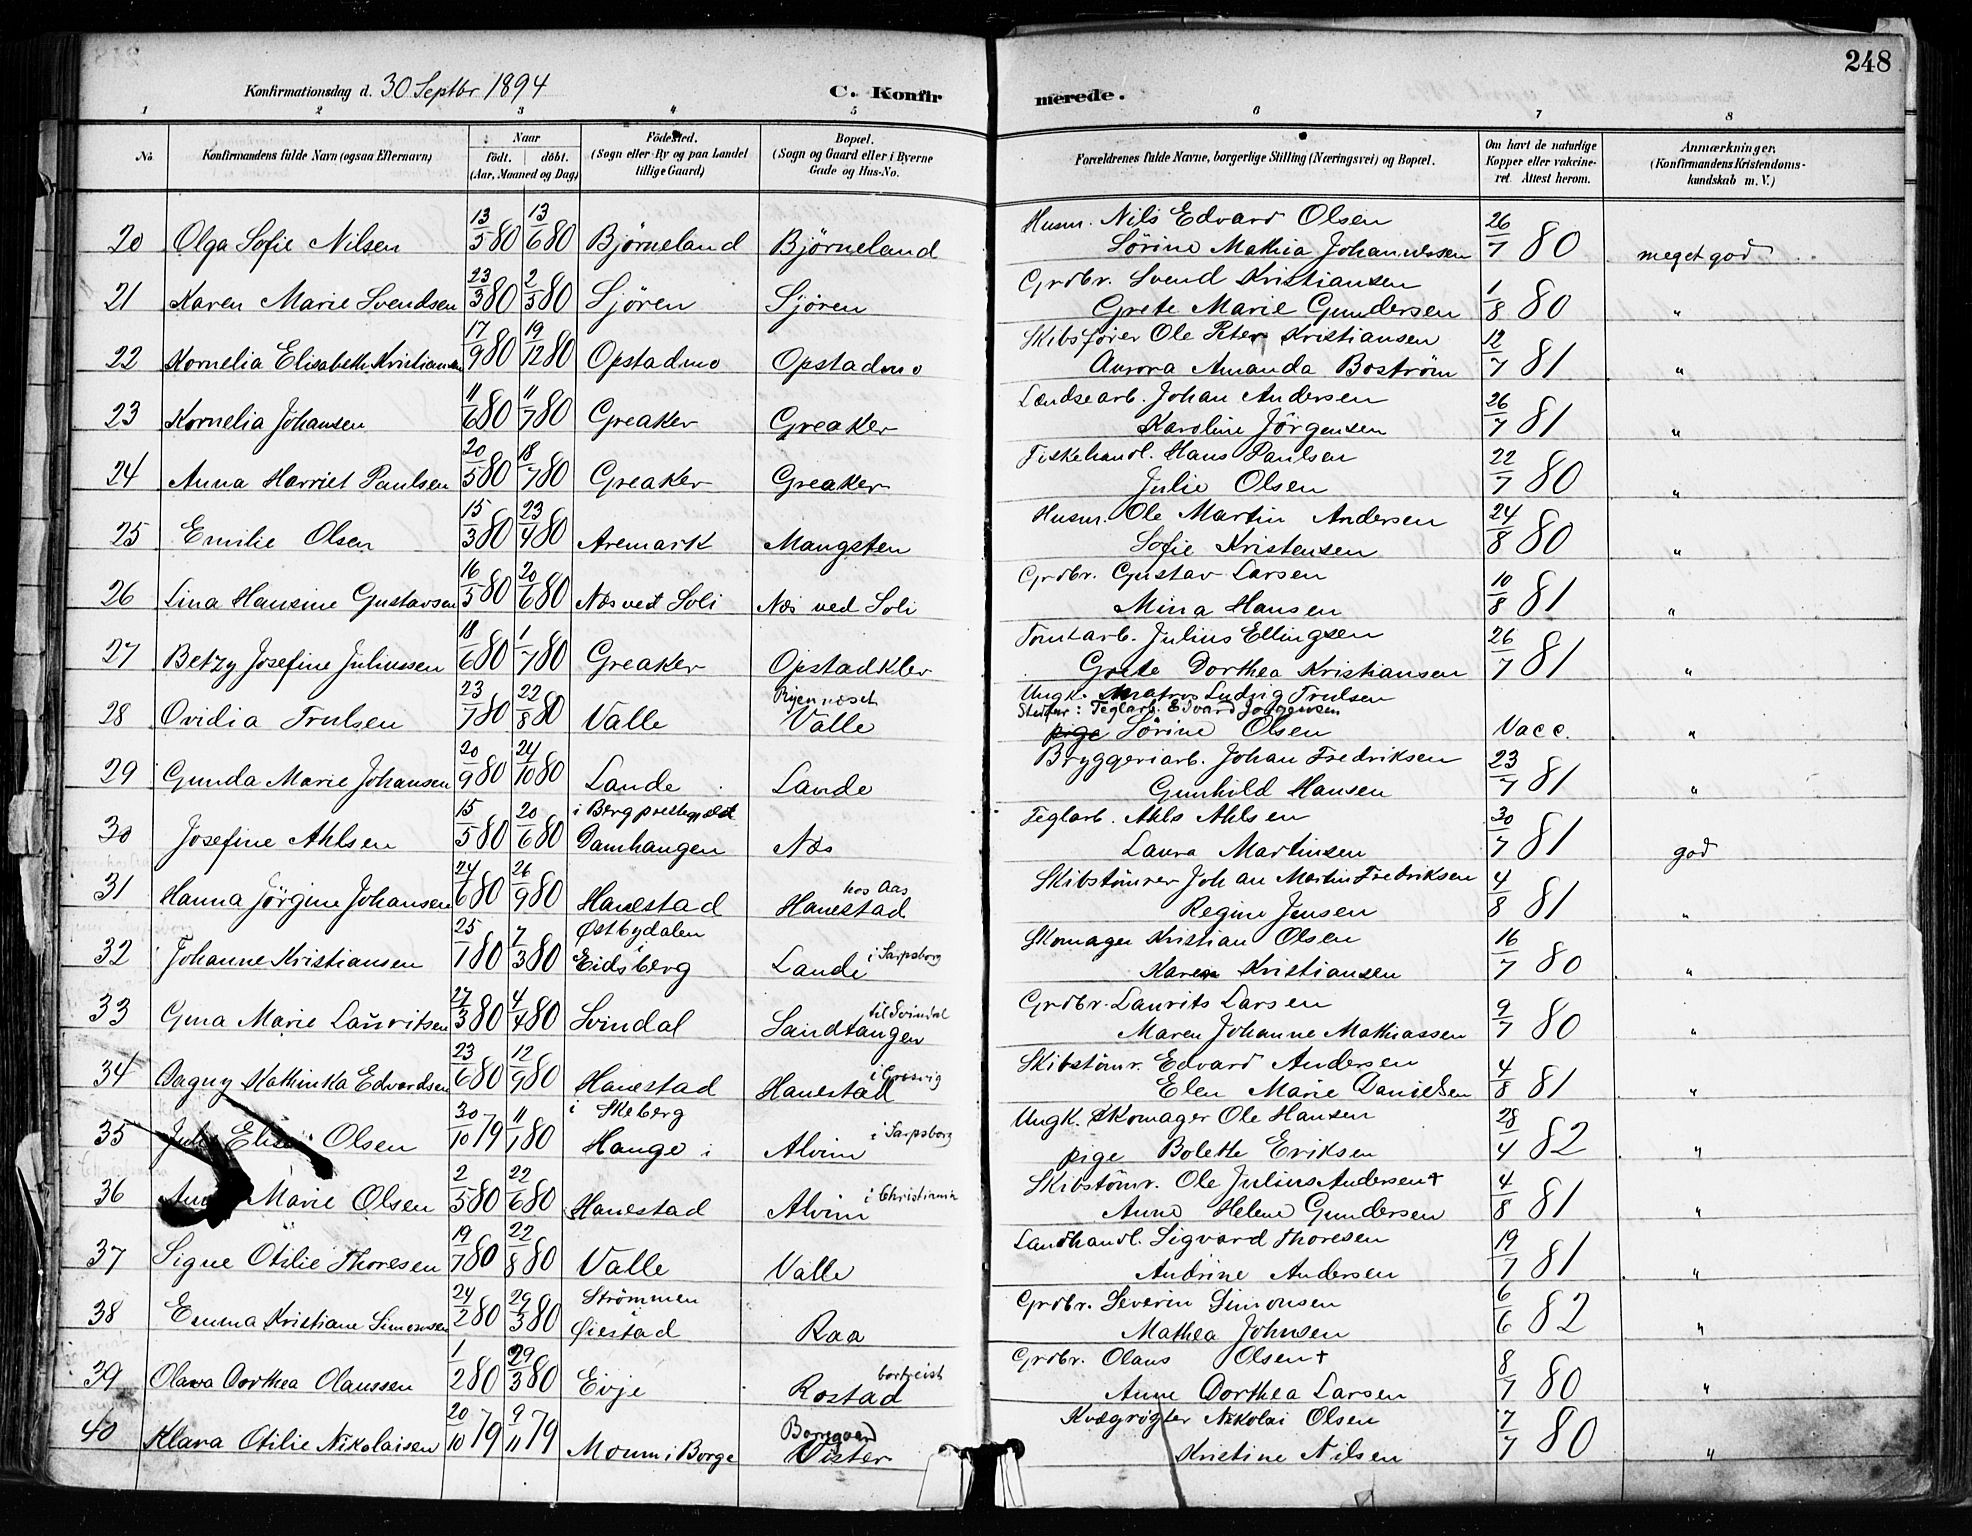 248
Konfirmationsdag d. 30 Septbr 1894 C. Konfirmerede.
1 2 3 4 5 6 7 8
No. Konfirmandens fulde Navn (ogsaa Efternavn) Naar født. døbt. (Aar, Maaned og Dag) Fødested. (Sogn eller By og paa Landet tillige Gaard) Bopæl. (Sogn og Gaard eller i Byerne Gade og Hus-No. Forældrenes fulde Navne, borgerlige Stilling (Næringsvei) og Bopæl. Om havt de naturlige Kopper eller vakcineret. Attest herom. Anmærkninger. (Konfirmandens Kristendomskundskab m. V.)
20 Olga Sofie Nilsen 13/5 80 13/6 80 Björneland Björneland Husm. Nils Edvard Olsen
Sörine Mathia Johannessen 26/7 80 meget god
21 Karen Marie Svendsen 23/3 80 2/5 80 Sjören Sjören Grdbr. Svend Kristiansen
Grete Marie Gundersen 1/8 80 "
22 Kornelia Elisabeth Kristiansen 17/9 80 19/12 80 Opstadmo Opstadmo Skibsfører Ole Peter Kristiansen
Aurora Amanda Boström 12/7 81 "
23 Kornelia Johansen 11/6 80 11/7 80 Greaker Greaker Lændsearb. Johan Andersen
Karoline Jörgensen 26/7 81 "
24 Anna Harriet Paulsen 20/5 80 18/7 80 Greaker Greaker Fiskehandl. Hans Paulsen
Julie Olsen 22/7 80 "
25 Emilie Olsen 15/3 80 23/4 80 Aremark Mangsten Husm. Ole Martin Andersen
Sofie Kristensen 24/8 80 "
26 Lina Hansine Gustavsen 16/5 80 20/6 80 Næs ved Soli Næs ved Soli Grdbr. Gustav Larsen
Mina Hansen 10/8 81 "
27 Betzy Josefine Juliussen 18/6 80 1/7 80 Greaker Opstadklev Tomtarb. Julius Ellingsen
Grete Dorthea Kristiansen 26/7 81 "
28 Ovidia Trulsen 23/7 80 22/8 80 Valle Valle Ungk. Matros Ludvig Trulsen
Stedfar: Teglarb. Edvard Jørgensen
pige Sörine Olsen Vacc. "
29 Gunda Marie Johansen 20/9 80 24/10 80 Lande Lande Bryggeriarb. Johan Fredriksen
Gunhild Hansen 23/7 81 "
30 Josefine Ahlsen 15/5 80 20/6 80 i Berg præstegjæld Damhaugen Næs Teglarb. Ahls Ahlsen
Laura Martinsen 30/7 81 god
31 Hanna Jörgine Johansen 24/6 80 26/9 80 Hanestad hos Aas Hanestad Skibstömrer Johan Martin Fredriksen
Regine Jensen 4/8 81 "
32 Johanne Kristiansen 25/1 80 7/3 80 Østbydalen i Eidsberg Lande i Sarpsborg Skomager Kristian Olsen
Karen Kristiansen 16/7 80 "
33 Gina Marie Lauritsen 27/3 80 4/4 80 Svindal Sandtangen til Svindal Grdbr. Laurits Larsen
Maren Johanne Mathiassen 9/7 80 "
34 Dagny Kathinka Edvardsen 23/6 80 12/9 80 Hanestad Hanestad i Gresvig Skibstömr. Edvard Andersen
Elen Marie Danielsen 4/8 81 "
35 Olsen 30/10 79 11/1 80 i Skeberg Hauge i Alvim i Sarpsborg Ungk. Skomager Ole Hansen
pige Bolette Eriksen 28/4 82 "
36 Marie Olsen 2/5 80 22/6 80 Hanestad Alvim i Christiania Skibstömr. Ole Julius Andersen +
Anne Helene Gundersen 4/8 81 "
37 Signe Otilie Thoresen 19/7 80 22/8 80 Valle Valle Landhandl. Sigvard Thoresen
Andrine Andersen 19/7 81 "
38 Emma Kristiane Simonsen 24/2 80 29/3 80 Strömmen i Øiestad Raa Grdbr. Severin Simonsen
Mathea Johnsen 6/6 82 "
39 Olava Dorthea Olaussen 1/2 80 29/3 80 Evje bortreist Rostad Grdbr. Olaus Olsen +
Anne Dorthea Larsen 8/7 80 "
40 Klara Otilie Nikolaisen 20/10 79 9/11 79 Moum i Borge Borregaard Vister Kvægrøgter Nikolai Olsen
Kristine Nilsen 7/7 80 "